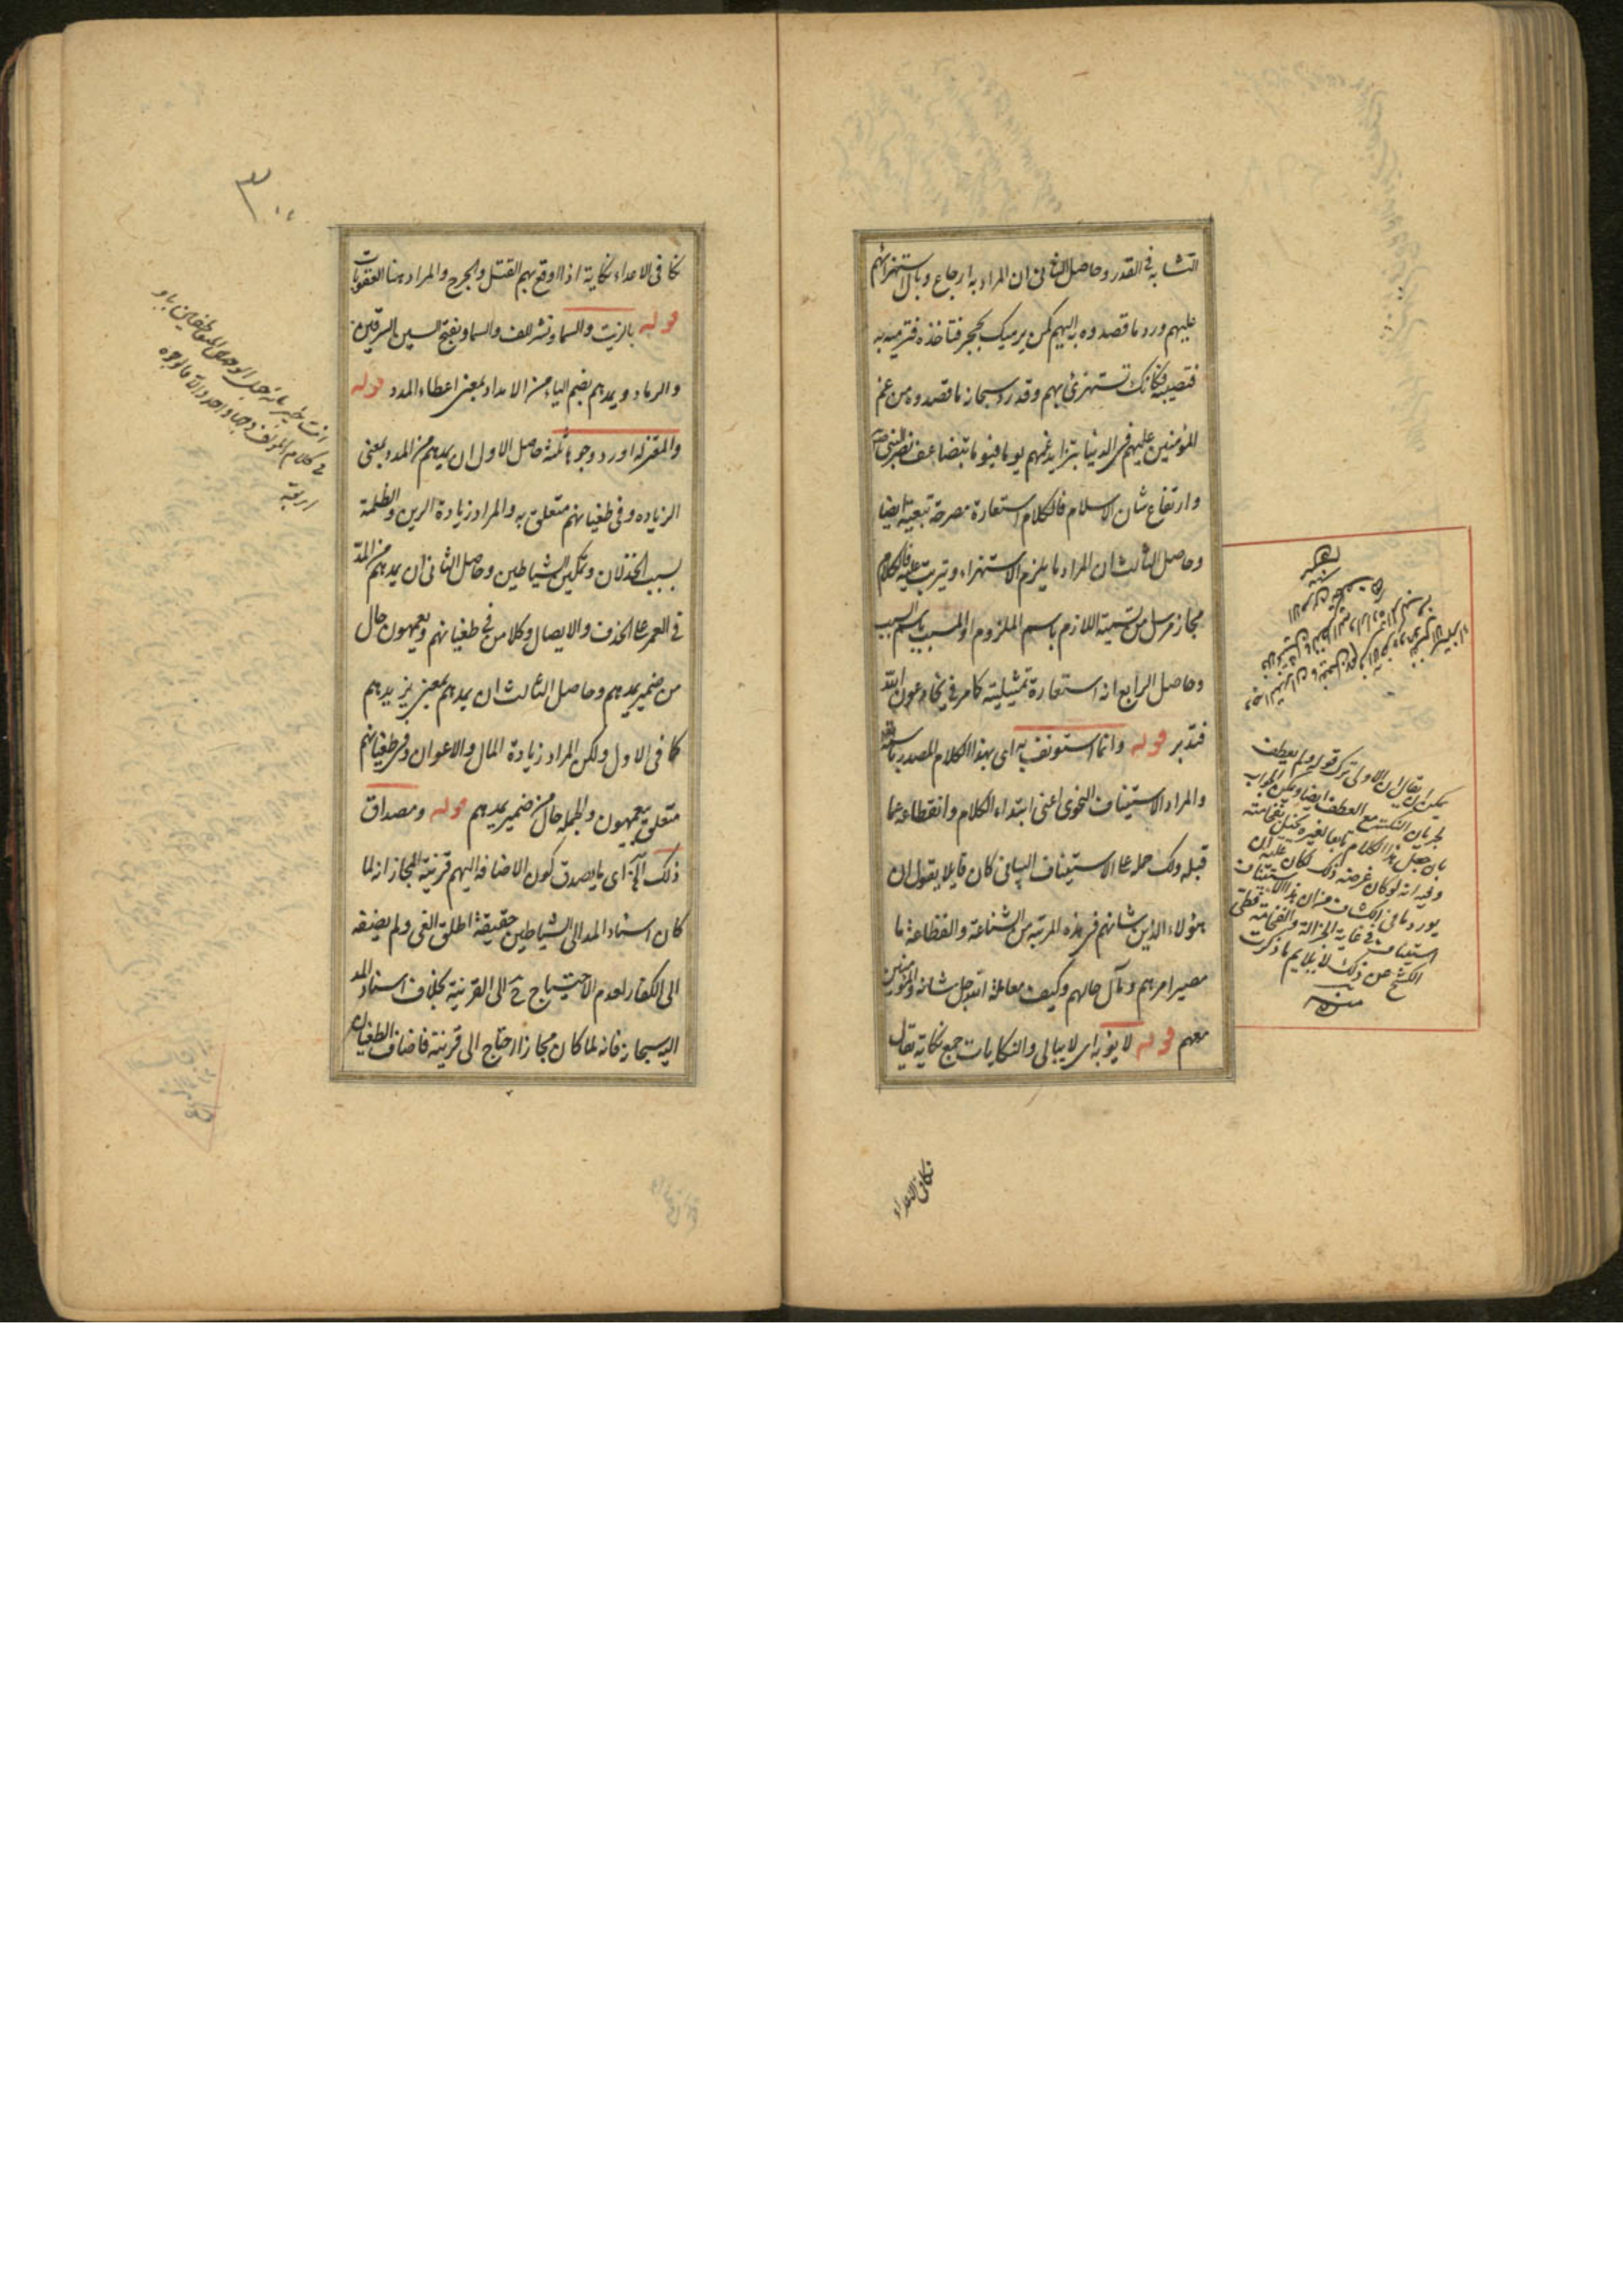 التشابه في القدر وحاصل الثاني ان المراد به ارجاع وبال استهزائهم
عليهم ورد ما قصدوه به اليهم كمن يرميك بحجر فتاخذه فترميه به
فتصيبه فكانك تستهزئ بهم وقد رد سبحانه ما قصدوه من غم
المؤمنين عليهم في الدنيا بتزايد غمهم يوما فيوما بتضاعف نصر النبي
وارتفاع شان الاسلام فالكلام استعارة مصرحة تبعية ايضا
وحاصل الثالث ان المراد ما يلزم الاستهزاء ويترتب عليه فالكلام
مجاز مرسل من تسمية اللازم باسم الملزوم او المسبب باسم السبب
وحاصل الرابع انه استعارة تمثيلية كما مر في يخادعون الله
فتدبر قوله وانما استونف به اي بهذا الكلام المصدر باسم الله
والمراد الاستيناف النحوي اعني ابتداء الكلام وانقطاعه عما
قبله ولك حمله على الاستيناف البياني كان قايلا يقول ان
هؤلاء الذين شانهم في هذه المرتبة من الشناعة والفظاعة ما
مصير امرهم ومآل حالهم وكيف معاملة الله جل شانه والمؤمنين
معهم قوله لا يؤبه اي لا يبالي والنكايات جمع نكاية يقال
نكا في الاعداء
يمكن ان يقال ان الاولى ترك قوله ولم يعطف
لجريان النكتة مع العطف ايضا ويمكن الجواب
بان جعل هذا الكلام تابعا لغيره يخل بفخامته
وفيه انه لو كان غرضه ذلك لكان عليه ان
يورد ما في الكشاف من ان هذا الاستيناف
استيناف في غاية الجزالة والفخامة فطي
الكشح عن ذلك لا يلايم ما ذكرت
منه
نكا في الاعداء نكاية اذا اوقع بهم القتل والجرح والمراد هنا العقوبات
قوله بالزيت والسماد نشر للف والسماد بفتح السين السرقين
والرماد ويمدهم بضم الياء من الامداد بمعنى اعطاء المدد قوله
والمعتزله اورد وجوها ثلثة حاصل الاول ان يمدهم من المدد بمعنى
الزيادة وفي طغيانهم متعلق به والمراد زيادة الرين والظلمة
بسبب الخذلان وتمكين الشياطين وحاصل الثاني ان يمدهم من المد
في العمر على الحذف والايصال وكلا من في طغيانهم ويعمهون حال
من ضمير يمدهم وحاصل الثالث ان يمدهم بمعنى يزيدهم
كما في الاول ولكن المراد زيادة المال والاعوان وفي طغيانهم
متعلق بيعمهون والجملة حال من ضمير يمدهم قوله ومصداق
ذلك آه اي ما يصدق كون الاضافة اليهم قرينة المجاز انه لما
كان اسناد المد الى الشياطين حقيقة اطلق الغي ولم يضيفه
الى الكفار لعدم الاحتياج ح الى القرينة بخلاف اسناد المد
اليه سبحانه فانه لما كان مجازا احتاج الى قرينة فاضاف الطغيان